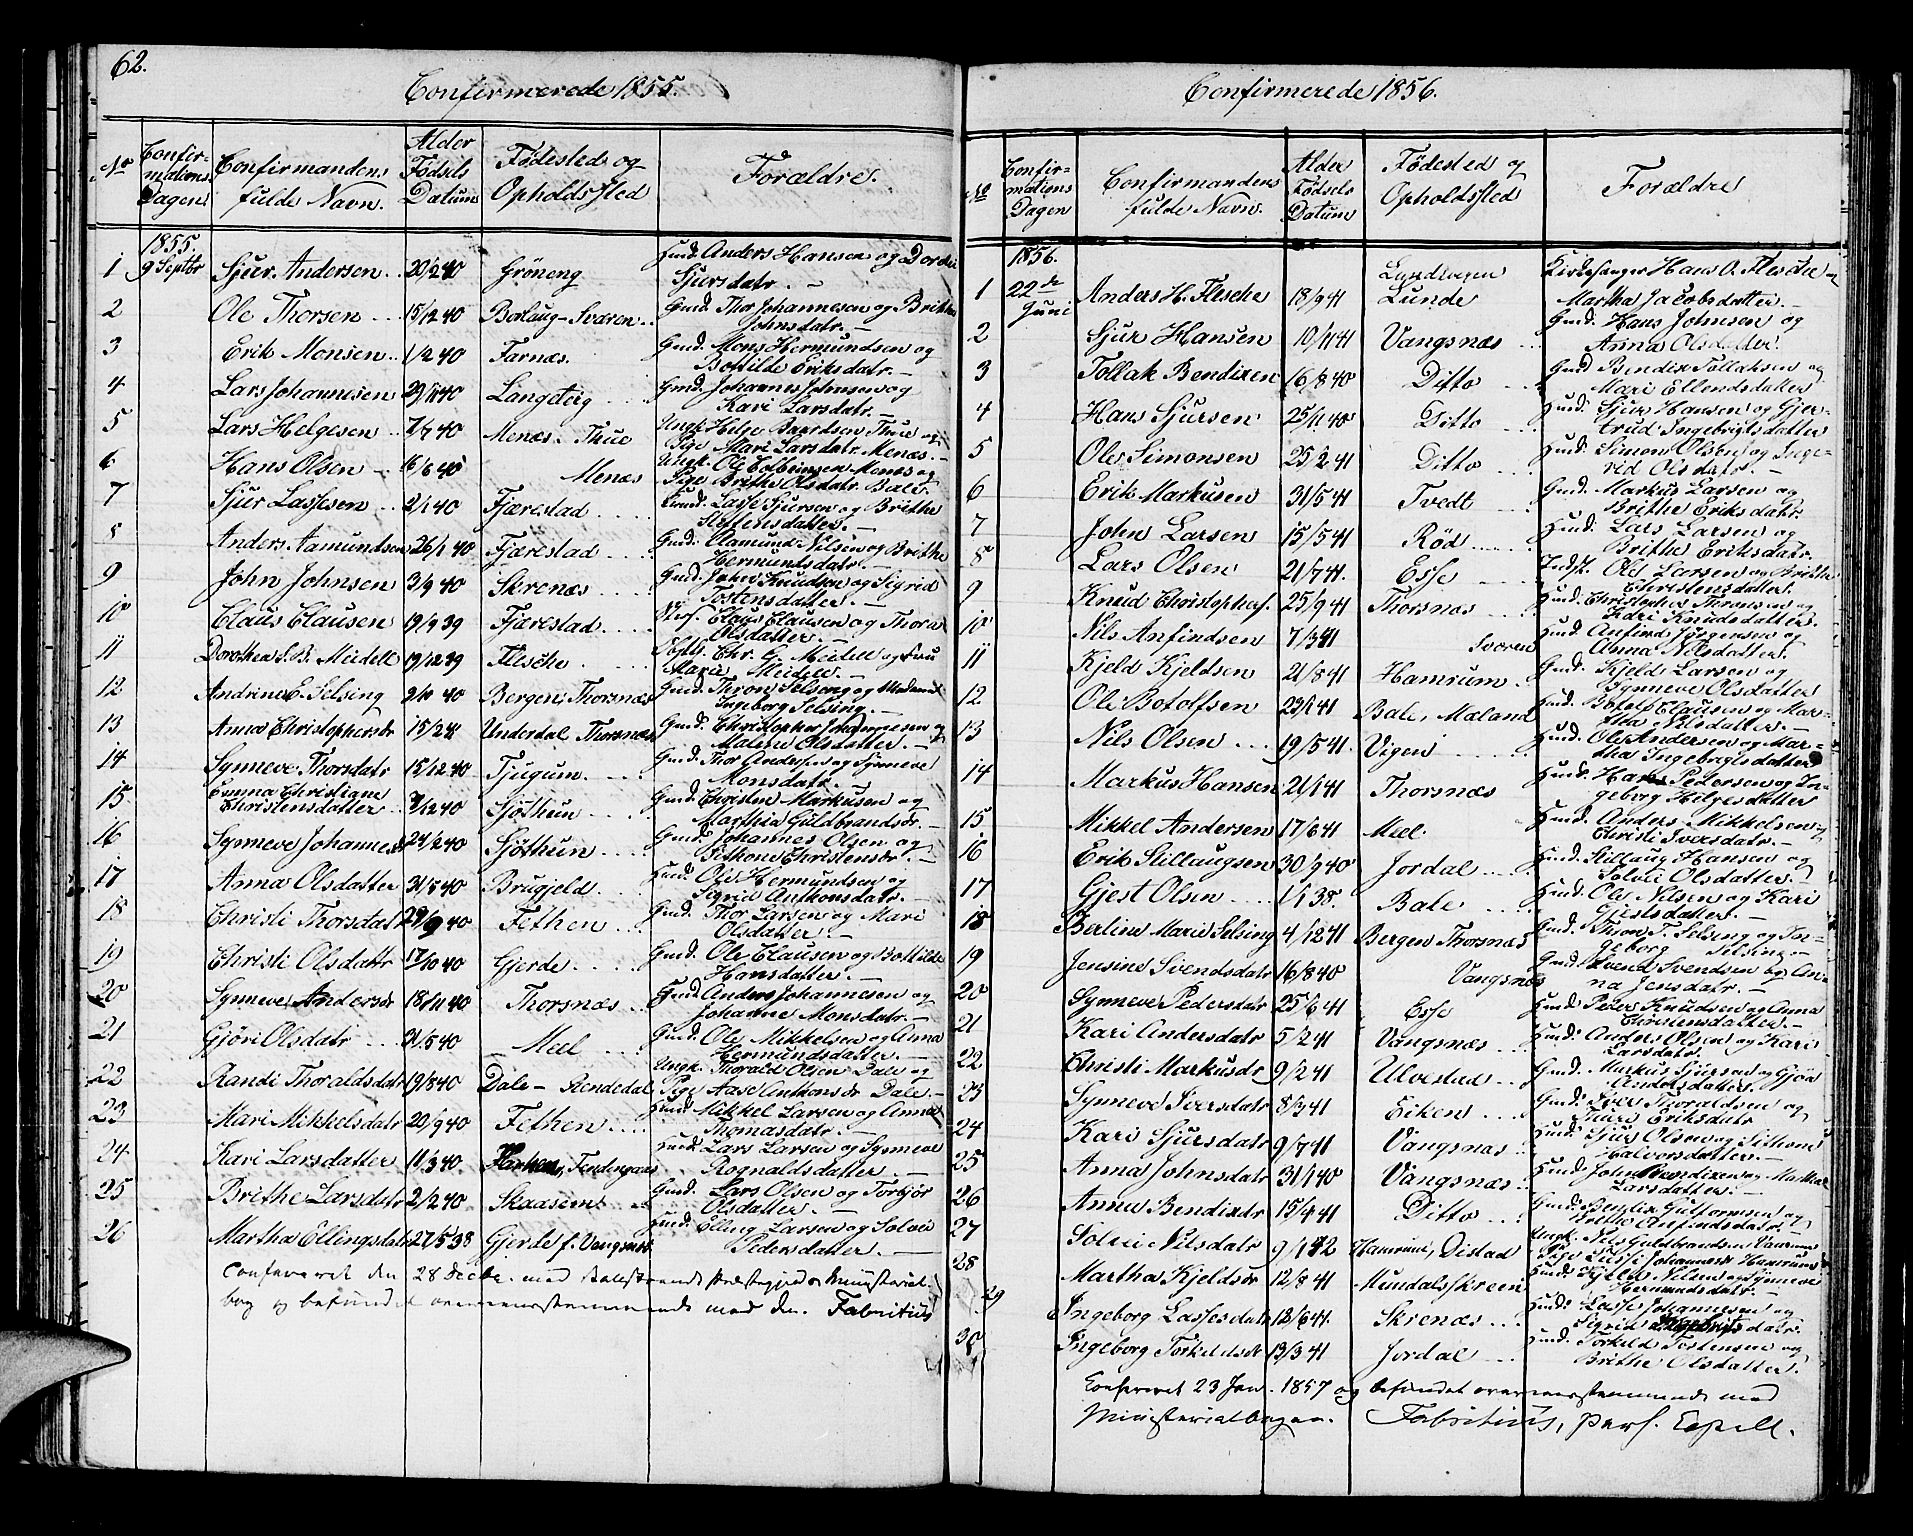 62.
Confirmerede 1855.
No Confirmations Dagen Confirmandens fulde Navn. Alder Fødsels Datum Fødested og Opholdssted Forældre.
1 1855. 9 Septbr Sjur Andersen 20/2 40 Grøneng Huud. Anders Hansen og Dordei Sjursdatr. —
2 Ole Thorsen 15/12 40 Borlaug - Sværen Gmd. Thor Johannesen og Brithe Johnsdatr. —
3 Erik Monsen 1/2 40 Farnæs. Gmd. Mons Hermundsen og Botilde Eriksdatr. —
4 Lars Johannesen 29/11 40 Langteig Gmd. Johannes Johnsen og Kari Larsdatr. —
5 Lars Helgesen 7/7 40 Menæs. Thue Ungk. Helge Baardsen Thue og Pige Mari Larsdatr. Menæs. —
6 Hans Olsen 16/6 40 Menæs Ungk. Ole Menæs og Pige Brithe Olsdatr. Bale.
7 Sjur Lassesen 2/1 40 Fjærestad Huud. Lasse Sjursen og Brithe Steffensdatter. —
8 Anders Aamundsen 26/1 40 Fjærestad Gmd. Olamund Nilsen og Brithe Hermundsdatr. —
9 John Johnsen 3/9 40 Skrenæs Gmd. John Knudsen og Sigrid Tostensdatter. —
10 Claus Clausen 19/9 39 Fjærestad Claus Clausen og Thora Olsdatter. —
11 Dorothea S. B. Meidell 19/12 39 Flesche Chr. G. Meidell og Fru Marie Meidell. —
12 Andrine E. Selsing 2/11 40 Bergen, Thorsnæs Gmd. Thron Selseng og Madame Ingeborg Selsing. —
13 Anna Christophersdr 15/2 41 Underdal Thorsnæs Gmd. Christopher Johannesen og Malene Olsdatter. —
14 Synneve Thorsdatr 15/12 40 Tjugum Gmd. Thor Andersen og Synneve Monsdatr.
15 Emma Christiane Christensdatter 7/12 40 Sjøthun Gmd. Christen Markusen og Marthia Guldbrandsdr. —
16 Synneve Johannesdr 24/2 40 Sjøthun Gmd. Johannes Olsen og Sitkone Christensdr. —
17 Anna Olsdatter 31/5 40 Brugjeld Huud. Ole Hermundsen og Sigrid Anthonsdatr. —
18 Christi Thorsdatr 29/9 40 Fethen Gmd. Thor Larsen og Mari Olsdatter. —
19 Christi Olsdatr 17/10 40 Gjerde Gmd. Ole Clausen og Botilde Hansdatter. —
20 Synneve Andersdr 18/11 40 Thorsnæs Gmd. Anders Johannesen og Johanne Monsdatr. —
21 Gjøri Olsdatr 31/5 40 Meel Gmd. Ole Mikkelsen og Anna Hermundsdatter. —
22 Randi Thoraldsdatr 19/8 40 Dale - Rendedal Ungk. Thorald Olsen Dale og Pige Aase Anthonsdr Dale. —
23 Mari Mikkelsdatr 20/9 40 Fethen Huud. Mikkel Larsen og Anna Thomasdatr. —
24 Kari Larsdatter 11/3 40 Huud. Lars Larsen og Synneve Rognaldsdatter. —
25 Brithe Larsdatr 2/2 40 Skaasem Gmd. Lars Olsen og Torbjør Olsdatter. —
26 Martha Ellingsdatr 27/5 38 Gjerde f. Vangsnæs Huud. Elling Larsen og Solvei Pedersdatter. —
Confereret den 28 Decbr. med Balestrands Præstegjelds Ministerial-
bog og befundet overensstemmende med den. Fabritius
Confirmerede 1856.
No Confirmations Dagen Confirmandens fulde Navn. Alder Fødsels Datum Fødested og Opholdssted Forældre
1 1856. 22de Juni Anders H. Flesche 18/9 41 Lundevegen Lunde Kirkesanger Hans O. Flesche og Martha Jacobsdatter. —
2 Sjur Hansen 10/11 41 Vangsnæs Gmd. Hans Johnsen og Anna Olsdatter.
3 Tollak Bendixen 16/8 40 Ditto Gmd Bendix Tollaksen og Mari Ellendsdatter
4 Hans Sjursen 25/11 40 Ditto Huud. Sjur Hansen og Gjertrud Ingebrigtsdatter
5 Ole Simonsen 25/2 41 Ditto Huud. Simon Olsen og Ingerid Olsdatr. —
6 Erik Markusen 31/5 41 Tvedt Gmd. Markus Larsen og Brithe Eriksdatr.
7 John Larsen 15/5 41 Rød Huud. Lars Larsen og Brithe Eriksdatr.
8 Lars Olsen 21/7 41. Esse Indst. Ole Larsen og Brithe Christensdatter.
9 Knud Christophers. 25/9 41 Thorsnæs Huud. Christopher Thronsen og Kari Knudsdatter.
10 Nils Anfindsen 7/3 41 Sværen Huud. Anfind Jørgensen og Anna Nilsdatter.
11 Kjeld Kjeldsen 21/8 41 Hamrum Gmd. Kjeld Larsen og Synneve Olsdatter
12 Ole Botolfsen 29/1 41 Bale, Mæland Huud. Botolf Clausen og Martha Nilsdatter. —
13 Nils Olsen 19/5 41. Vigen Huud. Ole Andersen og Martha Ingebrigtsdatter
14 Markus Hansen 21/1 41 Thorsnæs Huud. Hans Pedersen og Ingeborg Helgesdatter
15 Mikkel Andersen 17/6 41 Meel. Huud. Anders Mikkelsen og Christi Iversdatr. —
16 Erik Stillaugsen 30/9 40 Jordal Huud. Stillaug Hansen og Solvei Olsdatter. —
17 Gjest Olsen 1/1 38. Bale Huud. Ole Nilsen og Kari Gjestsdatter. —
18 Berline Marie Selsing 4/12 41 Bergen Thorsnæs Gmd. Thron T. Selsing og Ingeborg Selsing. —
19 Jensine Svendsdatr 16/8 40 Vangsnæs Gmd. Svend Svendsen og Anna Jensdatr. —
20 Synneve Pedersdatr 25/6 41 Esse Huud. Peder Knudsen og Anna Christensdatter. —
21 Kari Andersdatr 5/2 41 Vangsnæs Huud. Anders Olsen og Kari Larsdatr.
22 Christi Markusdr 9/2 41 Ulvestad Gmd. Markus Sjursen og Gjøri Andersdatter. —
23 Synneve Iversdatr 8/3 41 Eiken Gmd. Iver Thoraldsen og Thure Eriksdatr
24 Kari Sjursdatr 9/7 41 Vangsnæs Huud. Sjur Olsen og Sithone Halvorsdatter. —
25 Anna Johnsdatr 31/1 40 Vangsnæs Huud. John Bendixen og Martha Larsdatter. —
26 Anna Bendixdr 15/4 41 Ditto Gmd. Bendix Guttormsen og Brithe Anfindsdatr. —
27 Solvei Nilsdatr 9/1 42 Hamrum, Distad Ungk. Nils Guldbrandsen Vangsnæs Pige Lussi Johannesdr Hamrum
28 Martha Kjeldsdr 12/8 41 Mundalsskreen Huud. Kjeld Nilsen og Synneve Hermundsdatr. —
29 Ingeborg Lassesdatr 12/6 41. Skrenæs Huud. Lasse Johannesen og Sigrid Ingebrigtsdatr.
30 Ingeborg Torkeldsdr 13/3 41 Jordal Huud. Torkeld Tostensen og Brithe Olsdatter.
Confereret 23 Jan. 1857 og befundet overensstemmende med
Ministerialbogen. Fabritius, pers. Capell.